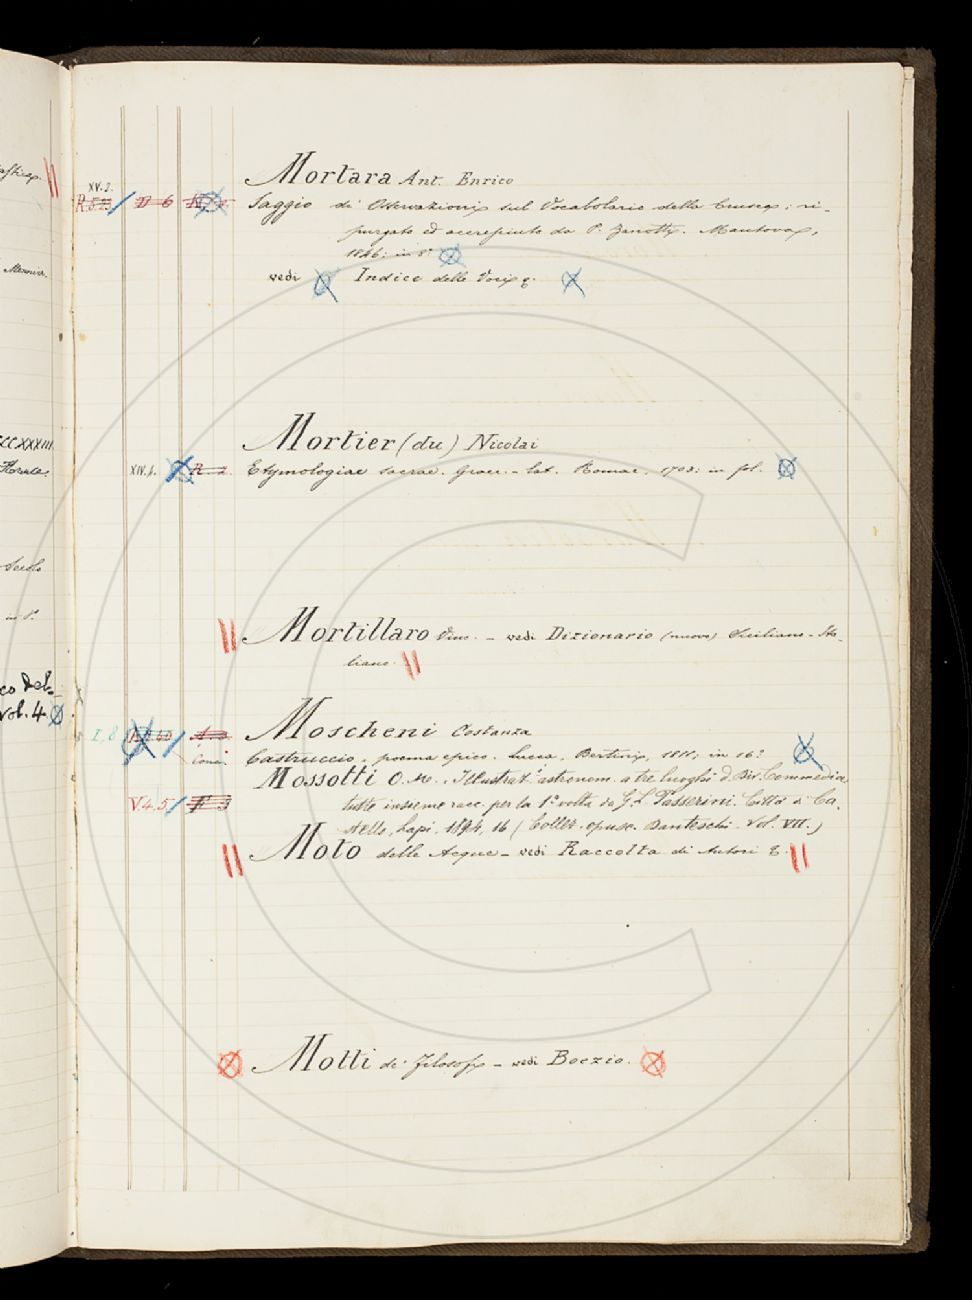 Mortara Ant. Enrico
XV. 2. D 6 Saggio di Osservazioni sul Vocabolario della Crusca; ri-
purgato ed accresciuto da P. Zanotti. Mantova,
1846; in 8°
vedi Indice delle Voci &.
Mortier (du) Nicolai
XIV. 1. R 2 Etymologiae sacrae. Graec. - lat. Romae. 1703; in fol.
Mortillaro Vinc. - vedi Dizionario (nuovo) Siciliano - Ita-
liano.
Moscheni Costanza
I, 8 Castruccio, poema epico. Lucca, Bertini, 1811; in 16°
Mossotti O. M. Illustraz. astronom. a tre luoghi d. Div. Commedia
V 4.5 F 3 tutte insieme racc. per la 1a volta da G. L. Passerini. Città di Ca-
stello, Lapi, 1894, 16 (Collez. opusc. Danteschi. Vol. VII.)
Moto delle Acque - vedi Raccolta di Autori &.
Motti di Filosofi - vedi Boezio.
Vol. 4